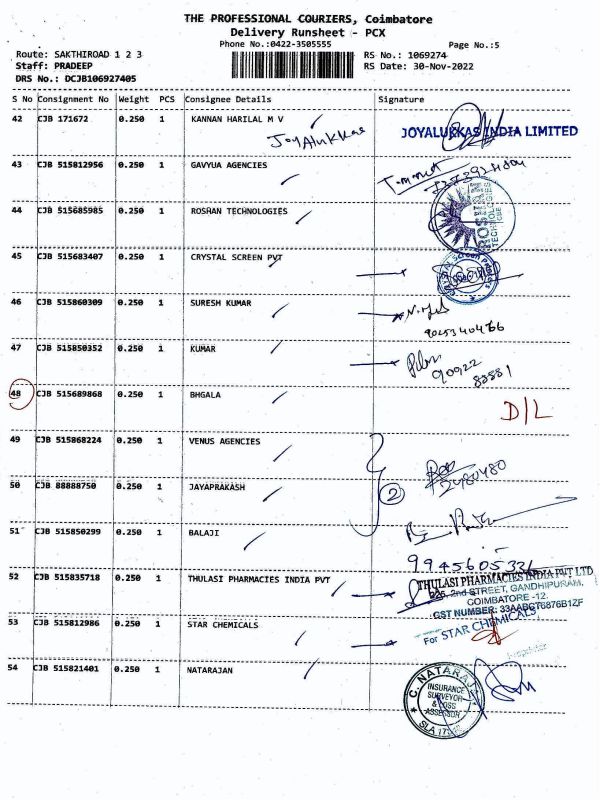 THE PROFESSIONAL COURIERS, Coimbatore
Delivery Runsheet - PCX
Phone No.:0422-3505555
Page No.:5
Route: SAKTHIROAD 1 2 3
RS No.: 1069274
Staff: PRADEEP
RS Date: 30-Nov-2022
DRS No.: DCJB106927405
S No Consignment No Weight PCS Consignee Details Signature
42 CJB 171672 0.250 1 KANNAN HARILAL M V
JoyAlukkas JOYALUKKAS INDIA LIMITED
43 CJB 515812956 0.250 1 GAVYUA AGENCIES
44 CJB 515685985 0.250 1 ROSHAN TECHNOLOGIES
45 CJB 515683407 0.250 1 CRYSTAL SCREEN PVT
46 CJB 515860309 0.250 1 SURESH KUMAR
47 CJB 515850352 0.250 1 KUMAR
90922
83881
48 CJB 515689868 0.250 1 BHGALA
D/L
49 CJB 515868224 0.250 1 VENUS AGENCIES
2480480
50 CJB 88888750 0.250 1 JAYAPRAKASH
2
51 CJB 515850299 0.250 1 BALAJI
52 CJB 515835718 0.250 1 THULASI PHARMACIES INDIA PVT
THULASI PHARMACIES INDIA PVT LTD
226, 2nd STREET, GANDHIPURAM,
COIMBATORE -12.
GST NUMBER: 33AABCT6876B1ZF
53 CJB 515812986 0.250 1 STAR CHEMICALS
For STAR CHEMICALS
54 CJB 515821401 0.250 1 NATARAJAN
C. NATARAJAN
INSURANCE
SURVEYOR
& LOSS
ASSESSOR